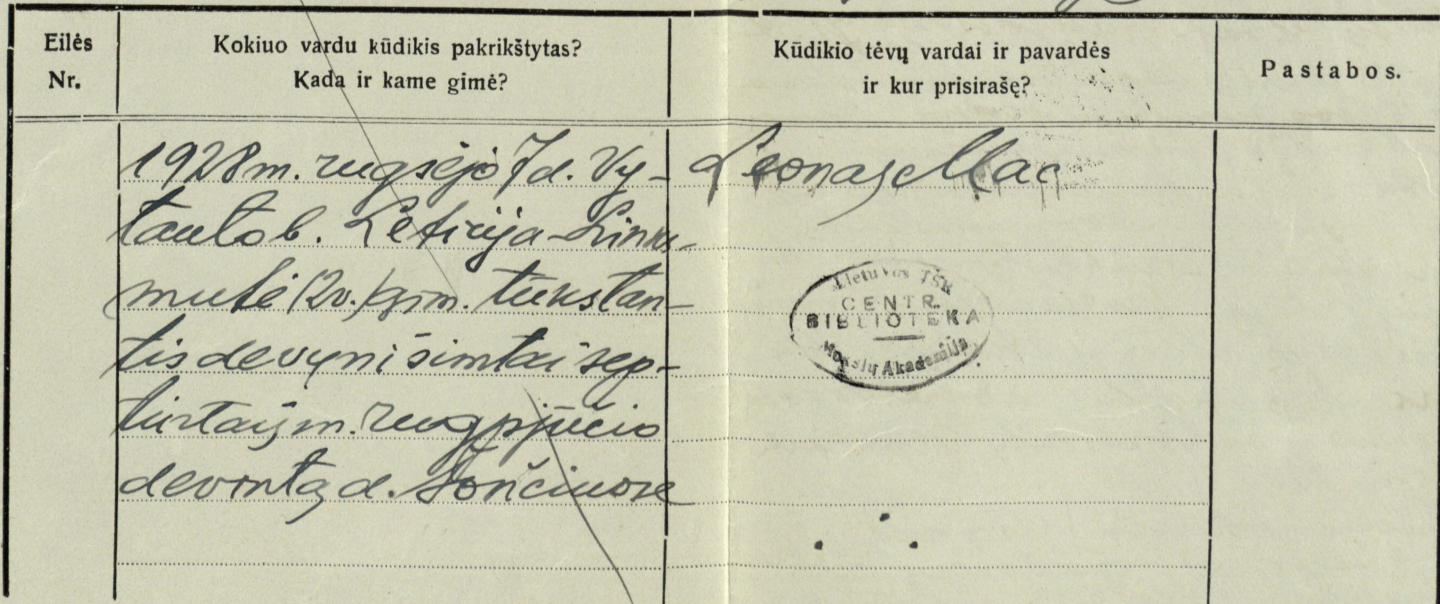 Eilės
Nr.
Kokiuo vardu kūdikis pakrikštytas?
Kada ir kame gimė?
Kūdikio tėvų vardai ir pavardės
ir kur prisirašę?
Pastabos.
1928 m. rugsėjo 7 d. Vy-
tauto b. Leticija-Links-
mutė (2v.) gim. tūkstan-
tis devyni šimtai sep-
tintaij m. rugpjūčio
devintą d. Šančiuose
Leonas Mac
Lietuvos TSR
CENTR.
BIBLIOTEKA
Mokslų Akademija